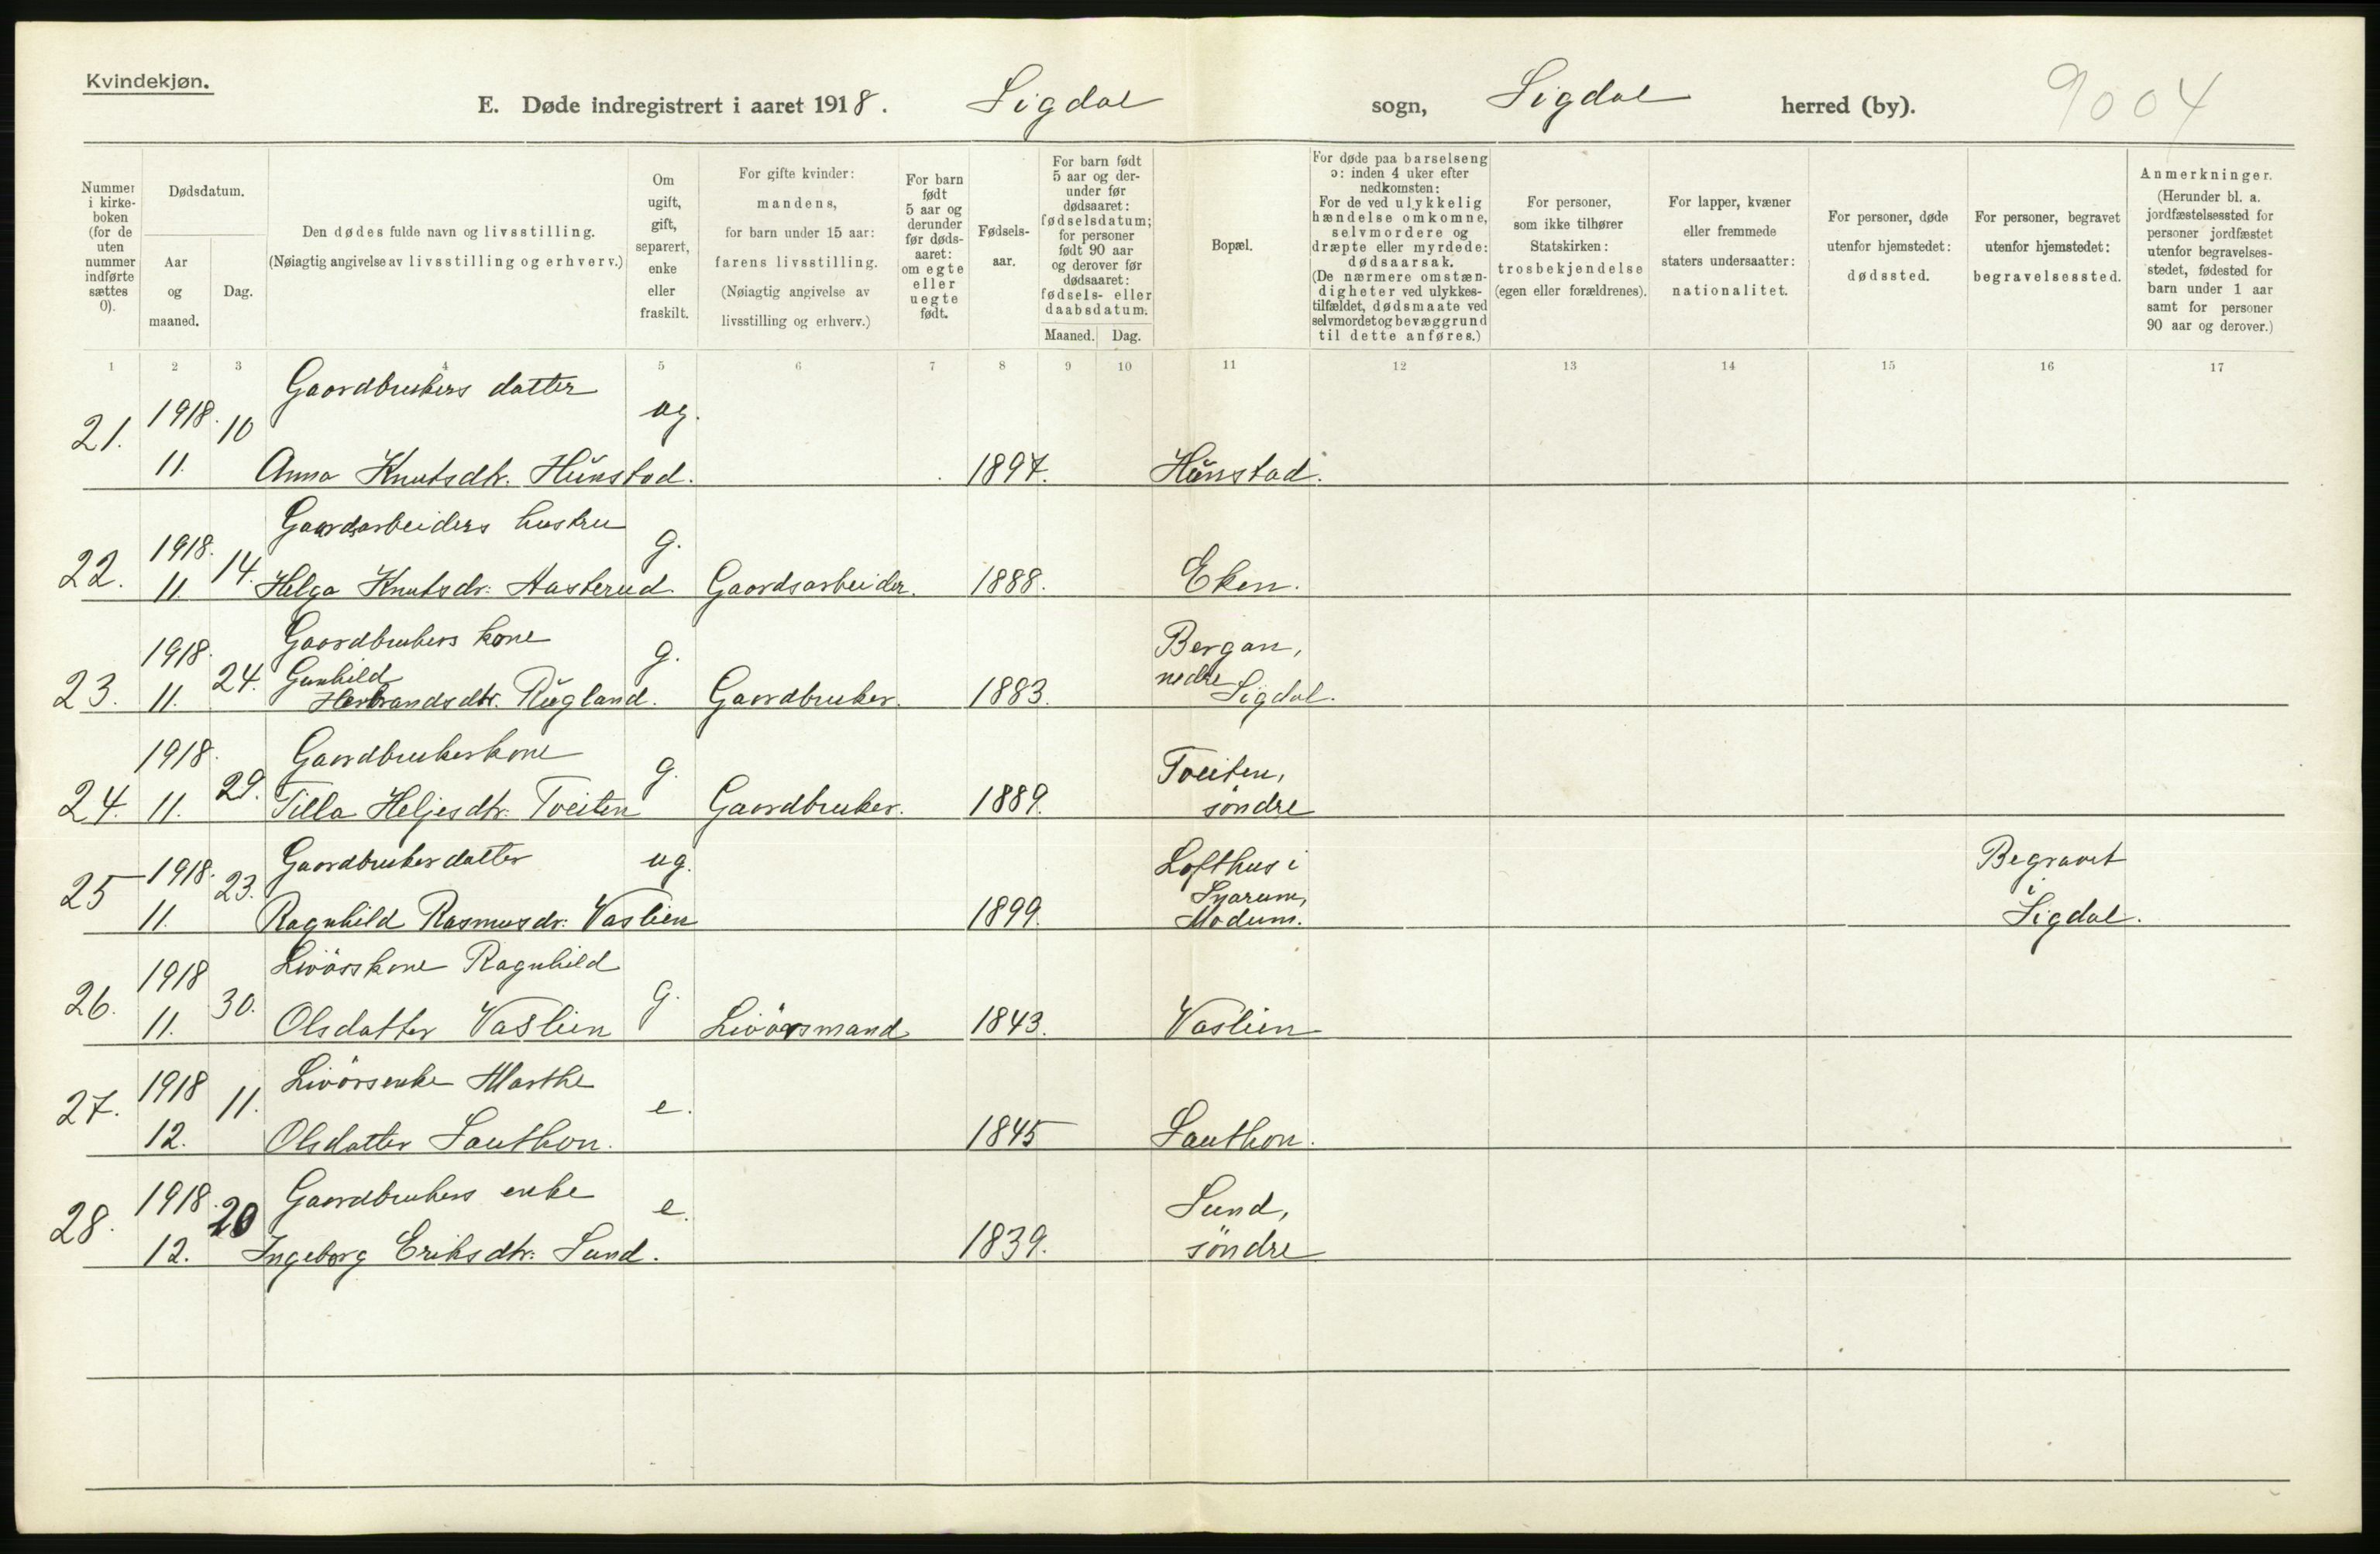 Kvindekjøn.
E. Døde indregistrert i aaret 1918. Sigdal sogn, Sigdal herred (by). 9004
Nummer i kirkeboken (for de uten nummer indførte sættes 0).
Dødsdatum.
Aar og maaned.
Dag.
Den dødes fulde navn og livsstilling.
(Nøiagtig angivelse av livsstilling og erhverv.)
Om ugift, gift, separert, enke eller fraskilt.
For gifte kvinder: mandens, for barn under 15 aar: farens livsstilling. (Nøiagtig angivelse av livsstilling og erhverv.)
For barn født 5 aar og derunder før dødsaaret: om egte eller uegte født.
Fødselsaar.
For barn født 5 aar og derunder før dødsaaret: fødselsdatum; for personer født 90 aar og derover før dødsaaret: fødsels- eller daabsdatum.
Maaned. Dag.
Bopæl.
For døde paa barselseng ɔ: inden 4 uker efter nedkomsten: For de ved ulykkelig hændelse omkomne, selvmordere og dræpte eller myrdede: dødsaarsak. (De nærmere omstændigheter ved ulykkestilfældet, dødsmaate ved selvmordet og bevæggrund til dette anføres.)
For personer, som ikke tilhører Statskirken: trosbekjendelse (egen eller forældrenes).
For lapper, kvæner eller fremmede staters undersaatter: nationalitet.
For personer, døde utenfor hjemstedet: dødssted.
For personer, begravet utenfor hjemstedet: begravelsessted.
Anmerkninger. (Herunder bl. a. jordfæstelsessted for personer jordfæstet utenfor begravelsesstedet, fødested for barn under 1 aar samt for personer 90 aar og derover.)
1 2 3 4 5 6 7 8 9 10 11 12 13 14 15 16 17
21. 1918. 10 Gaardbrukers datter ug.
11. Anna Knutsdtr. Hunstad. 1897. Hunstad.
22. 1918. 14. Gaardsarbeiders hustru g.
11. Helga Knutsdr. Aasterud. Gaardsarbeider. 1888. Eken.
23. 1918. 24. Gaardbrukers kone g. Bergan,
Gunhild nedre
11. Herbrandsdtr. Rugland. Gaardbruker. 1883. Sigdal.
24. 1918. 29. Gaardbrukerkone g. Tveiten,
11. Tilla Heljesdtr. Tveiten Gaardbruker. 1889. söndre
25 1918. 23. Gaardbrukerdatter ug. Lofthus i Begravet
Snarum, i
11. Ragnhild Rasmusdr. Vaslien 1899. Modum. Sigdal.
26. 1918 30. Livörskone Ragnhild g.
11. Olsdatter Vaslien Livörsmand 1843. Vaslien
27. 1918 11. Livörsenke Marthe e.
12. Olsdatter Sauthon. 1845 Sauthon.
28. 1918. 20 Gaardbrukers enke e. Lund,
12. Ingeborg Eriksdtr. Lund. 1839. söndre